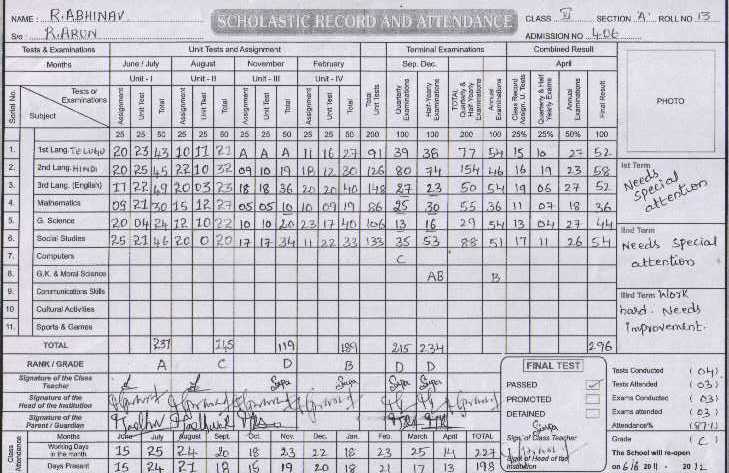 NAME : R.ABHINAV
SCHOLASTIC RECORD AND ATTENDANCE
CLASS VI SECTION 'A' ROLL NO 13
S/o R.ARUN
ADMISSION NO 406
Tests & Examinations Unit Tests and Assignment Terminal Examinations Combined Result
Months June / July August November February Sep. Dec. April
Unit - I Unit - II Unit - III Unit - IV
Serial No. Subject Tests or Examinations Assignment Unit Test Total Assignment Unit Test Total Assignment Unit Test Total Assignment Unit Test Total Total Unit Tests Quarterly Examinations Half-Yearly Examinations TOTAL Quarterly & Half Yearly Examinations Annual Examinations Class Record/ Assign. U. Tests Quarterly & Half Yearly Exams Annual Examinations Final Result
PHOTO
25 25 50 25 25 50 25 25 50 25 25 50 200 100 100 200 100 25% 25% 50% 100
1. 1st Lang. TELUGU 20 23 43 10 11 21 A A A 11 16 27 91 39 38 77 54 15 10 27 52
2. 2nd Lang. HINDI 20 25 45 22 10 32 09 10 19 18 12 30 126 80 74 154 46 16 19 23 58
3. 3rd Lang. (English) 17 22 49 20 03 23 18 18 36 20 20 40 148 27 23 50 54 19 06 27 52
4. Mathematics 09 21 30 15 12 27 05 05 10 10 09 19 86 25 30 55 36 11 07 18 36
5. G. Science 20 04 24 12 10 22 10 10 20 23 17 40 106 13 16 29 54 13 04 27 44
6. Social Studies 25 21 46 20 0 20 17 17 34 11 22 33 133 35 53 88 51 17 11 26 54
7. Computers C
8. G.K. & Moral Science AB B
9. Communications Skills
10. Cultural Activities
11. Sports & Games
TOTAL 237 145 119 189 215 234 296
RANK / GRADE A C D B D D
1st Term
Needs special attention
IInd Term
Needs special attention
IIIrd Term Work hard. Needs improvement.
Signature of the Class Teacher
Signature of the Head of the Institution
Signature of the Parent / Guardian
FINAL TEST
PASSED ✓
PROMOTED
DETAINED
Sign. of Class Teacher
Sign of Head of the Institution
Tests Conducted (04)
Tests Attended (03)
Exams Conducted (03)
Exams attended (03)
Attendance% (87.1)
Grade (C)
The School will re-open
on 6/6 2011 - 2012
Class Attendance
Months June July August Sept. Oct. Nov. Dec. Jan. Feb. March April TOTAL
Working Days in the month 15 25 24 20 18 23 22 18 23 25 14 227
Days Present 15 24 21 18 15 19 20 18 21 17 13 198